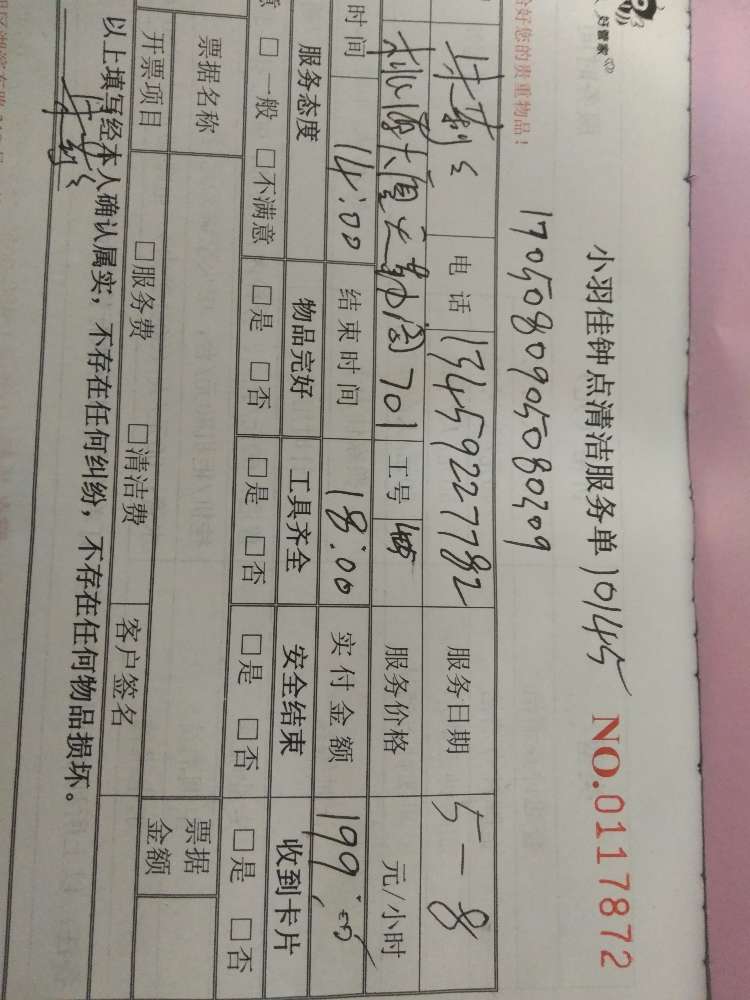 好管家
小羽佳钟点清洁服务单 10145 NO.0117872
恰好您的贵重物品！
1705080905080209
电话 13459227782 服务日期 5-8
701 工号 服务价格 元/小时
时间 14:00 结束时间 18:00 实付金额 199.00
服务态度 物品完好 工具齐全 安全结束 收到卡片
意 □一般 □不满意 □是 □否 □是 □否 □是 □否 □是 □否
票据名称 票据金额
开票项目 □服务费 □清洁费 客户签名
以上填写经本人确认属实，不存在任何纠纷，不存在任何物品损坏。